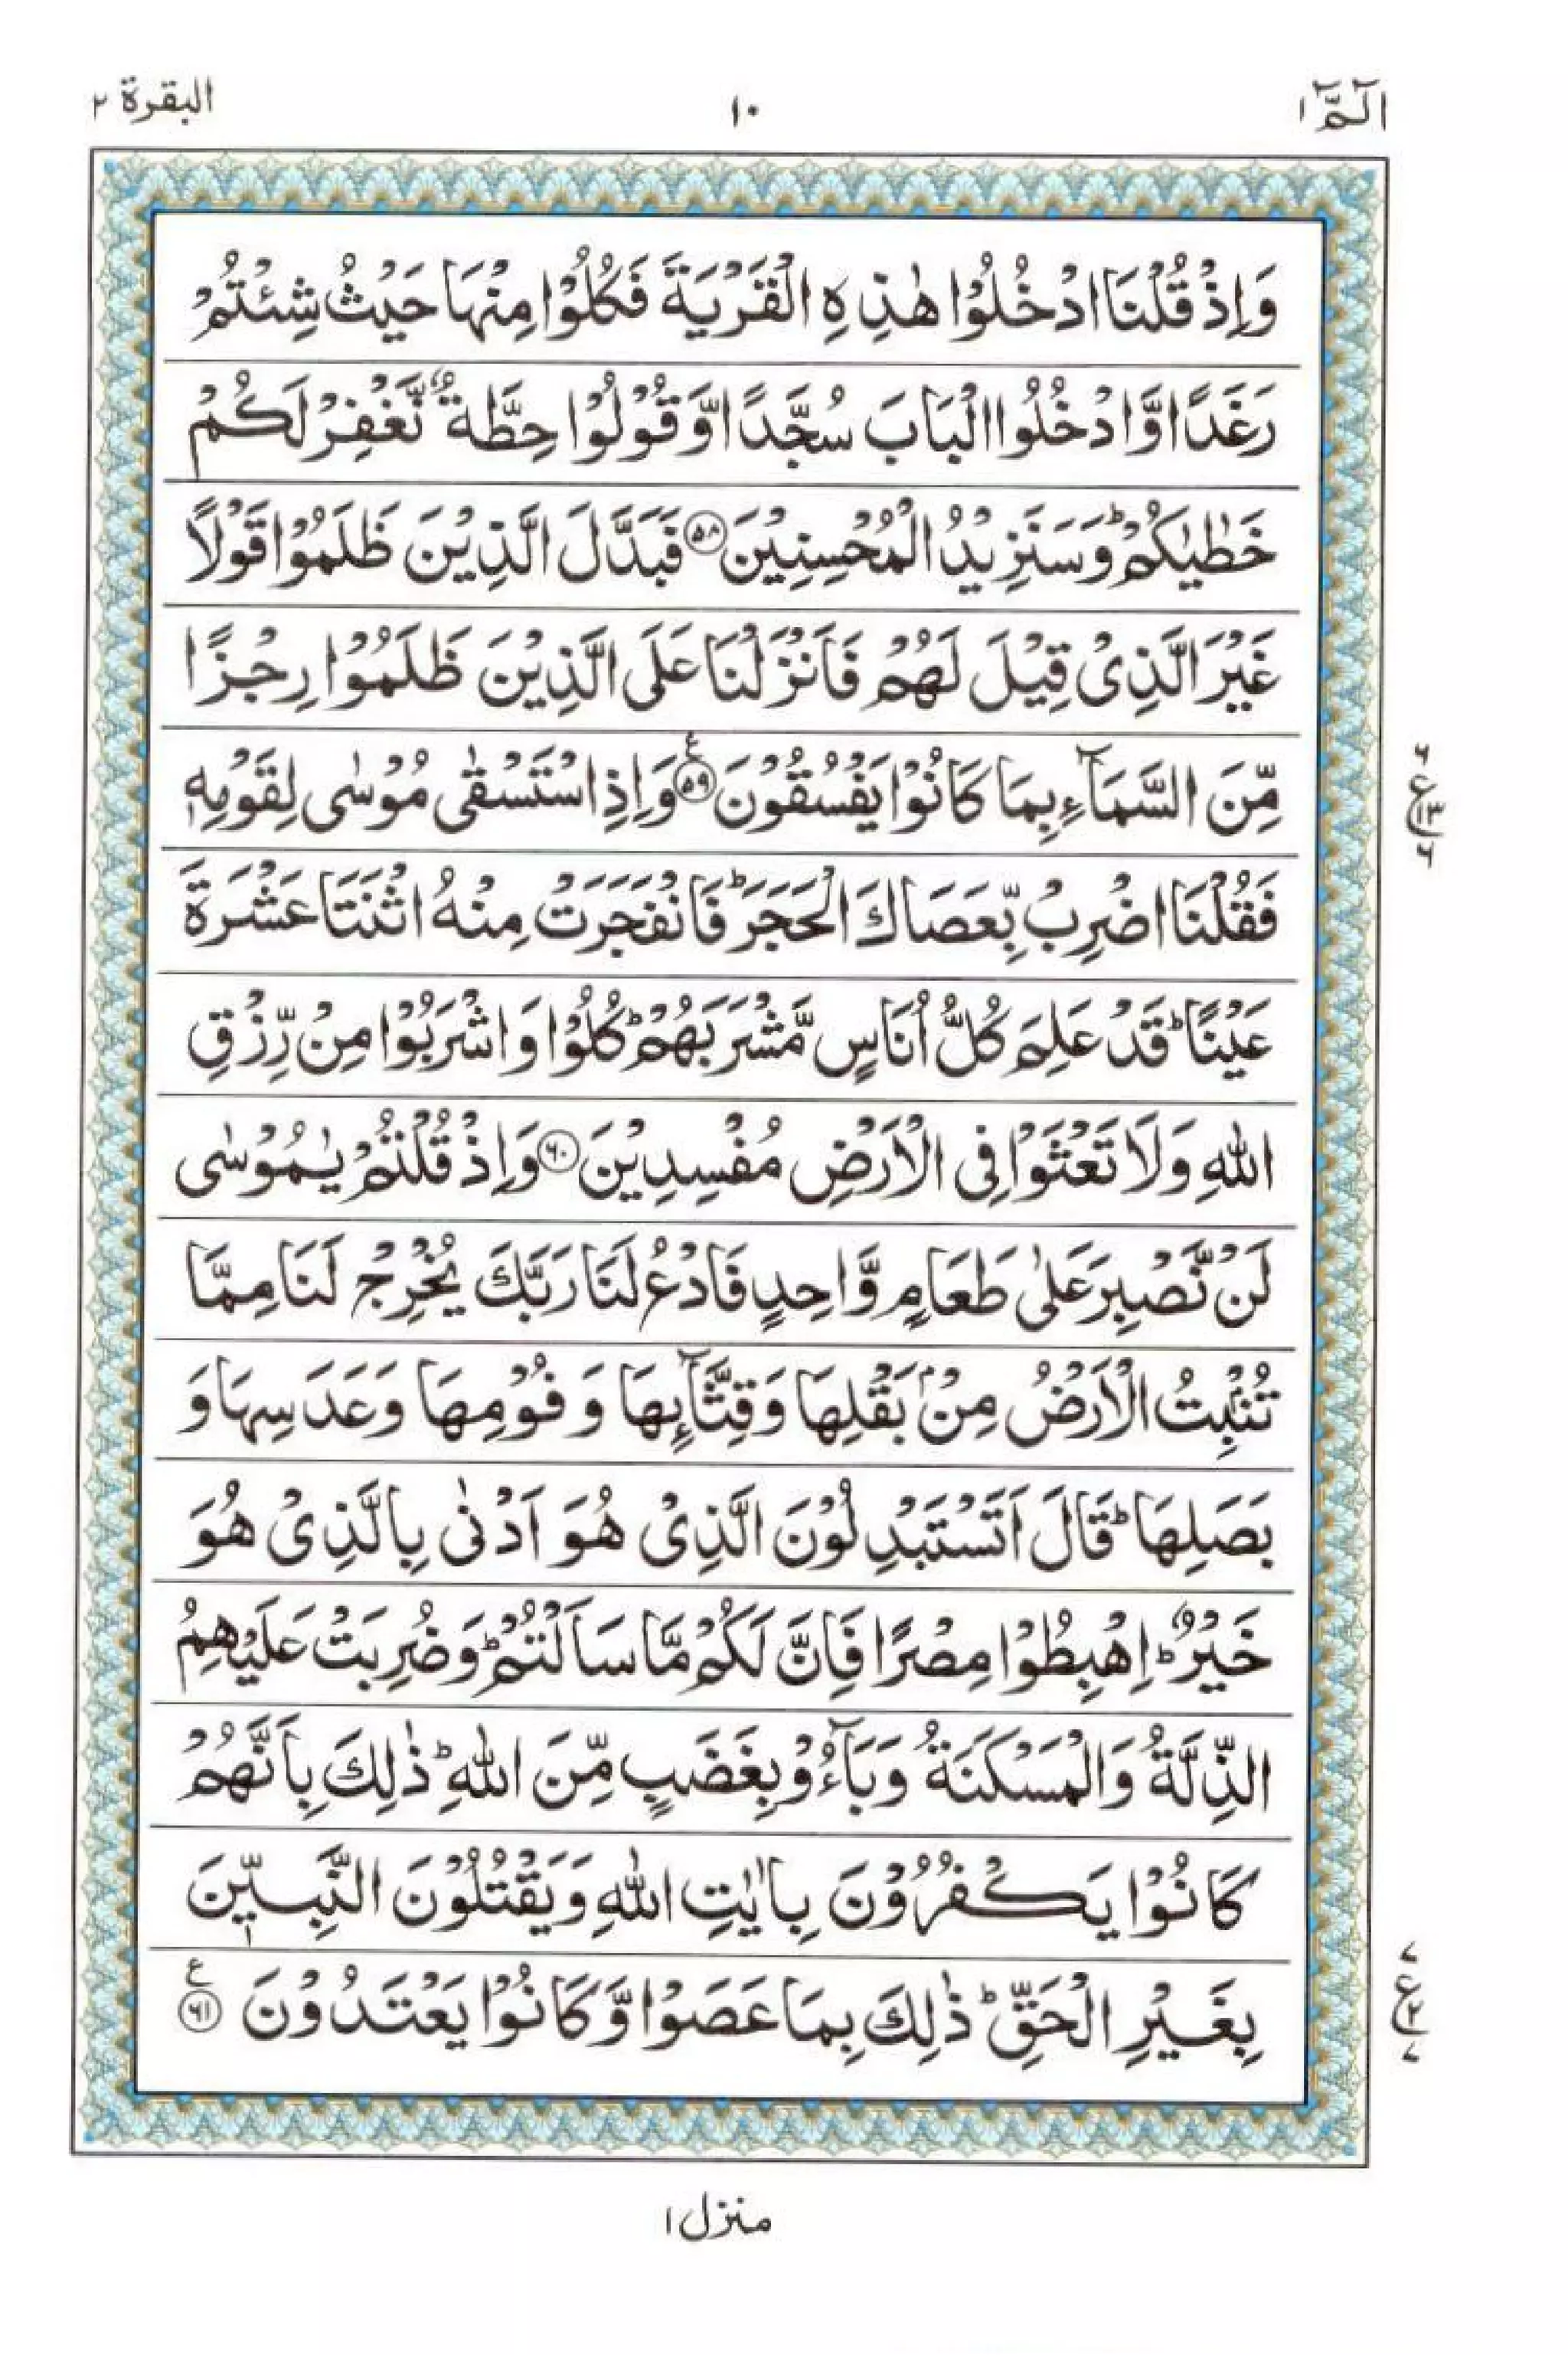 الٓمّٓ ١ ١٠ البقرة ٢
وَاِذْ قُلْنَا ادْخُلُوْا هٰذِهِ الْقَرْيَةَ فَكُلُوْا مِنْهَا حَيْثُ شِئْتُمْ
رَغَدًا وَّادْخُلُوا الْبَابَ سُجَّدًا وَّقُوْلُوْا حِطَّةٌ نَّغْفِرْ لَكُمْ
خَطٰيٰكُمْ ؕ وَسَنَزِيْدُ الْمُحْسِنِيْنَ ﴿۵۸﴾ فَبَدَّلَ الَّذِيْنَ ظَلَمُوْا قَوْلًا
غَيْرَ الَّذِىْ قِيْلَ لَهُمْ فَاَنْزَلْنَا عَلَى الَّذِيْنَ ظَلَمُوْا رِجْزًا
مِّنَ السَّمَآءِ بِمَا كَانُوْا يَفْسُقُوْنَ ﴿۵۹﴾ ع وَاِذِ اسْتَسْقٰى مُوْسٰى لِقَوْمِهٖ
فَقُلْنَا اضْرِبْ بِّعَصَاكَ الْحَجَرَ ؕ فَانْفَجَرَتْ مِنْهُ اثْنَتَا عَشْرَةَ
عَيْنًا ؕ قَدْ عَلِمَ كُلُّ اُنَاسٍ مَّشْرَبَهُمْ ؕ كُلُوْا وَاشْرَبُوْا مِنْ رِّزْقِ
اللّٰهِ وَلَا تَعْثَوْا فِى الْاَرْضِ مُفْسِدِيْنَ ﴿۶۰﴾ وَاِذْ قُلْتُمْ يٰمُوْسٰى
لَنْ نَّصْبِرَ عَلٰى طَعَامٍ وَّاحِدٍ فَادْعُ لَنَا رَبَّكَ يُخْرِجْ لَنَا مِمَّا
تُنْۢبِتُ الْاَرْضُ مِنْۢ بَقْلِهَا وَقِثَّآئِهَا وَفُوْمِهَا وَعَدَسِهَا وَ
بَصَلِهَا ؕ قَالَ اَتَسْتَبْدِلُوْنَ الَّذِىْ هُوَ اَدْنٰى بِالَّذِىْ هُوَ
خَيْرٌ ؕ اِهْبِطُوْا مِصْرًا فَاِنَّ لَكُمْ مَّا سَاَلْتُمْ ؕ وَضُرِبَتْ عَلَيْهِمُ
الذِّلَّةُ وَالْمَسْكَنَةُ وَبَآءُوْ بِغَضَبٍ مِّنَ اللّٰهِ ؕ ذٰلِكَ بِاَنَّهُمْ
كَانُوْا يَكْفُرُوْنَ بِاٰيٰتِ اللّٰهِ وَيَقْتُلُوْنَ النَّبِيّٖنَ
بِغَيْرِ الْحَقِّ ؕ ذٰلِكَ بِمَا عَصَوْا وَّكَانُوْا يَعْتَدُوْنَ ﴿۶۱﴾ ع
منزل ١